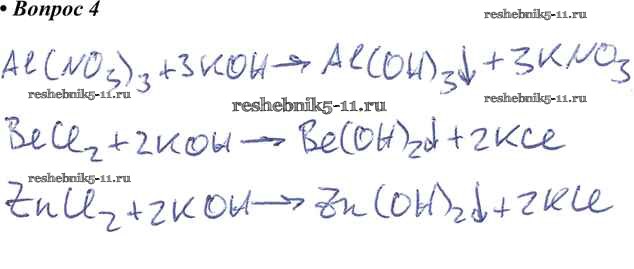 • Вопрос 4
reshebnik5-11.ru
Al(NO₃)₃ + 3KOH → Al(OH)₃↓ + 3KNO₃
reshebnik5-11.ru reshebnik5-11.ru
reshebnik5-11.ru
BeCl₂ + 2KOH → Be(OH)₂↓ + 2KCl
reshebnik5-11.ru reshebnik5-11.ru
ZnCl₂ + 2KOH → Zn(OH)₂↓ + 2KCl